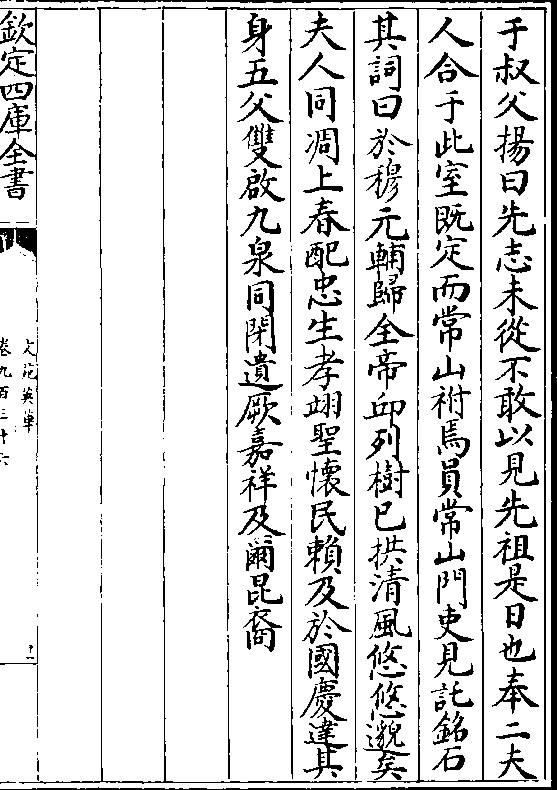 于叔父揚曰先志未從不敢以見先祖是日也奉二夫
人合于此室既定而常山祔焉員常山門吏見託銘石
其詞曰於穆元輔歸全帝丘列樹已拱清風悠悠邈矣
夫人同凋上春配忠生孝翊聖懷民頼及於國慶達其
身五父雙啟九泉同閉遺厥嘉祥及爾昆裔
欽定四庫全書
文苑英華
卷九百三十六